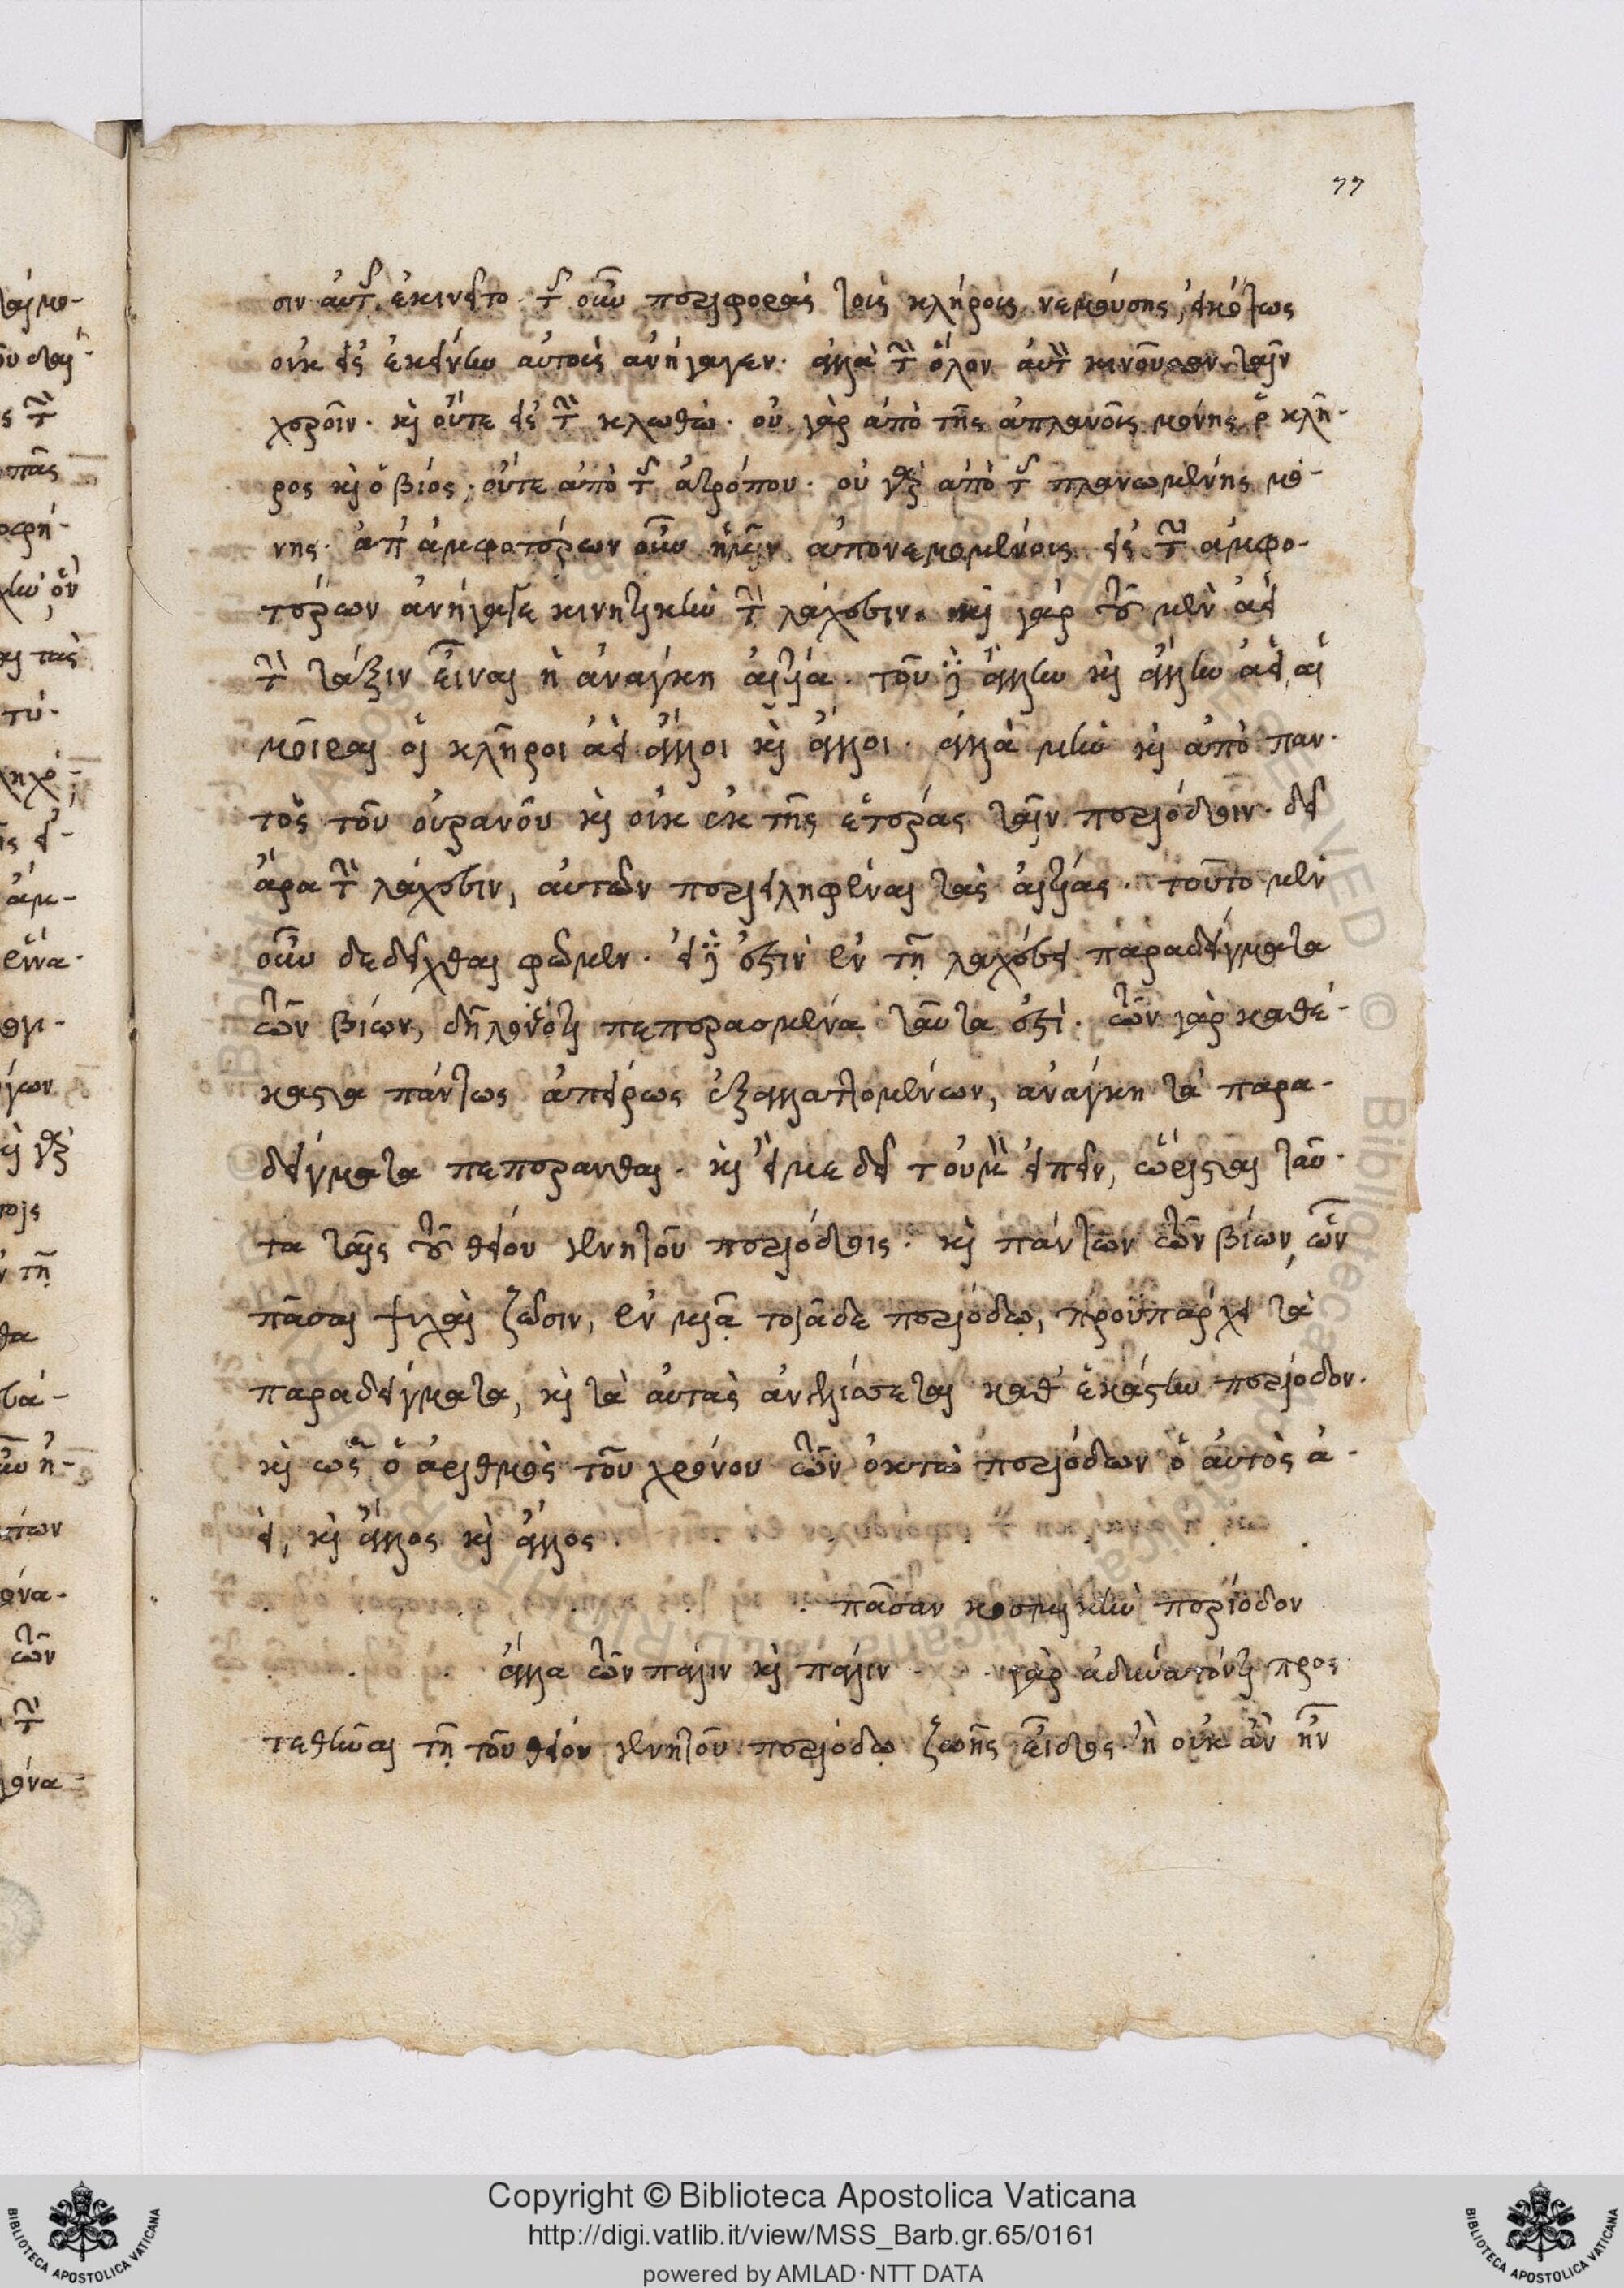 77
σιν αὐτῆς ἐκινεῖτο. τῆς οὖν περιφορᾶς τοῖς κλήροις νεμούσης, εἰκότως
οὐκ εἰς ἐκείνην αὐτοὺς ἀνήγαγεν. ἀλλὰ τὴν ὅλον αὐτὴν κινοῦσαν ταῖν
χεροῖν. καὶ οὔτε εἰς τὴν κλωθώ. οὐ γὰρ ἀπὸ τῆς ἀπλανοῦς μόνης ὁ κλῆ-
ρος καὶ ὁ βίος. οὔτε ἀπὸ τῆς ἀτρόπου. οὐ γὰρ ἀπὸ τῆς πλανωμένης μό-
νης. ἀπ' ἀμφοτέρων οὖν ἡμῖν ἀπονεμομένοις εἰς τὴν ἀμφο-
τέρων ἀνήγαγε κινητικὴν τὴν λάχεσιν. καὶ γὰρ τοῦ μὲν ἀεὶ
τὴν τάξιν εἶναι ἡ ἀνάγκη αἰτία. τοῦ δὲ ἄλλην καὶ ἄλλην ἀεὶ, αἱ
μοῖραι οἱ κλῆροι ἀεὶ ἄλλοι καὶ ἄλλοι. ἀλλὰ μὴν καὶ ἀπὸ παν-
τὸς τοῦ οὐρανοῦ καὶ οὐκ ἐκ τῆς ἑτέρας ταῖν περιόδοιν. δεῖ
ἄρα τὴν λάχεσιν, αὐτῶν περιειληφέναι τὰς αἰτίας. τοῦτο μὲν
οὖν δεδεῖχθαι φῶμεν. εἰ δὲ ἐστὶν ἐν τῇ λαχέσει παραδείγματα
τῶν βίων, δηλονότι πεπερασμένα ταῦτα ἐστί. τῶν γὰρ καθέ-
καστα πάντως ἀπείρως ἐξαλλαττομένων, ἀνάγκη τὰ παρα-
δείγματα πεπεράνθαι. καὶ εἴ με δεῖ τοὐμὸν εἰπεῖν, ὥρισται ταῦ-
τα ταῖς τοῦ θείου γεννητοῦ περιόδοις. καὶ πάντων τῶν βίων, ὧν
πᾶσαι ψυχαὶ ζῶσιν, ἐν μιᾷ τοιᾷδε περιόδῳ, προϋπάρχει τὰ
παραδείγματα, καὶ τὰ αὐτὰς ἀνελίσσεται καθ' ἑκάστην περίοδον.
καὶ ὡς ὁ ἀριθμὸς τοῦ χρόνου τῶν ὀκτὼ περιόδων ὁ αὐτὸς ἀ-
εὶ, καὶ ἄλλος καὶ ἄλλος
πᾶσαν κοσμικὴν περίοδον
ἀλλα τῶν πάλιν καὶ πάλιν γὰρ ἀδυνατόν τι προσ-
τεθῆναι τῇ τοῦ θείου γεννητοῦ περιόδῳ ζωῆς εἶδος. ἢ οὐκ ἂν ἦν
Copyright © Biblioteca Apostolica Vaticana
http://digi.vatlib.it/view/MSS_Barb.gr.65/0161
powered by AMLAD·NTT DATA
BIBLIOTECA APOSTOLICA VATICANA
BIBLIOTECA APOSTOLICA VATICANA